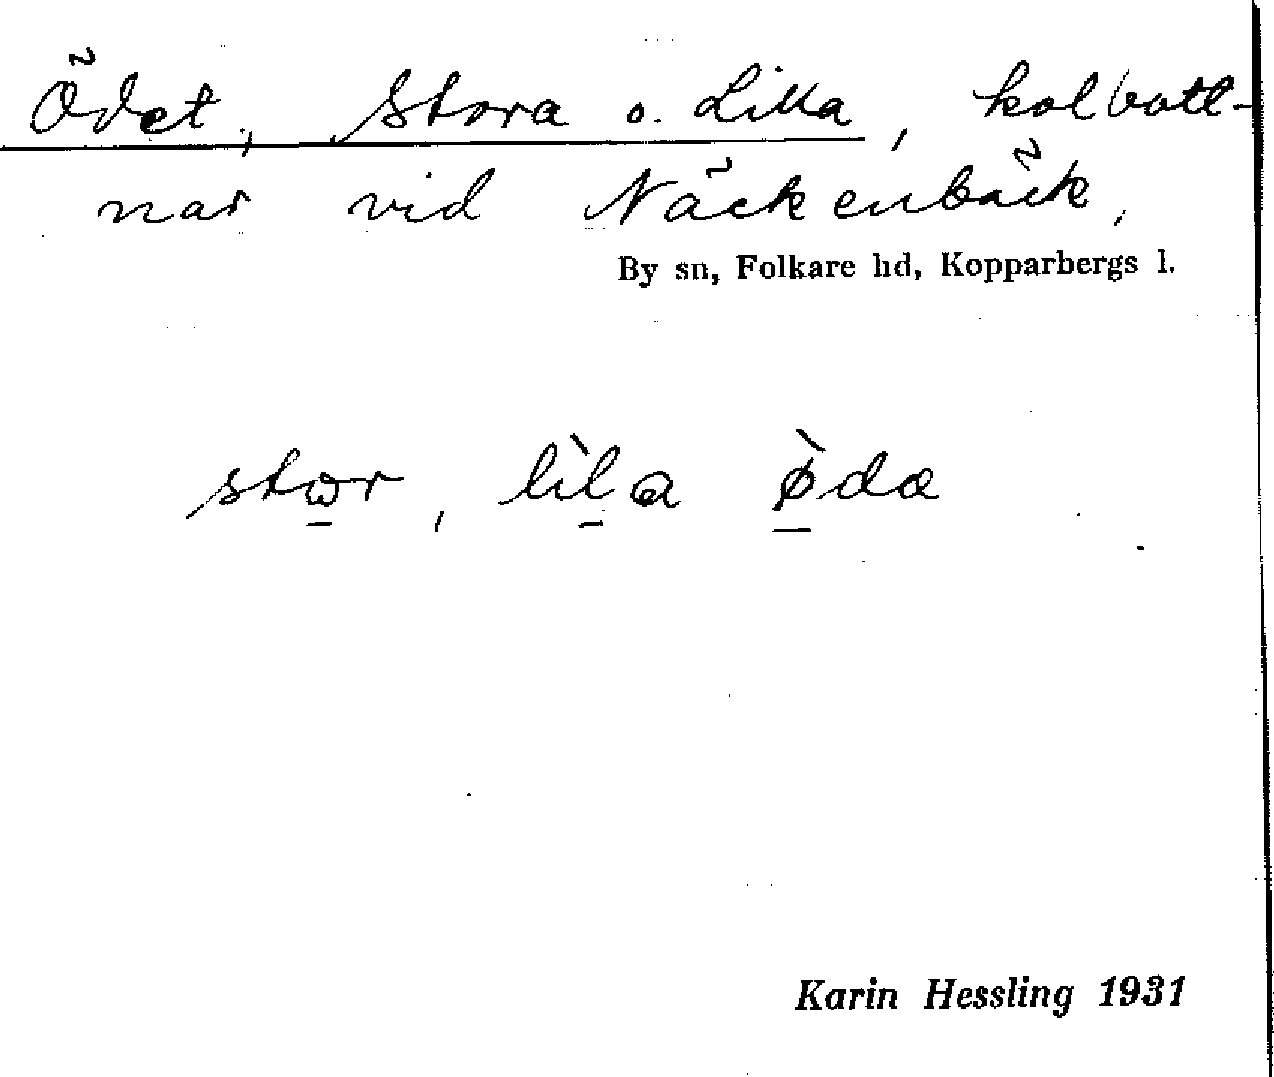 Ödet, Stora o. Lilla, kolbott-
nar vid Näckenbäck,
By sn, Folkare hd, Kopparbergs l.
stѡ̱r, lìḻa ø̱̀da
Karin Hessling 1931